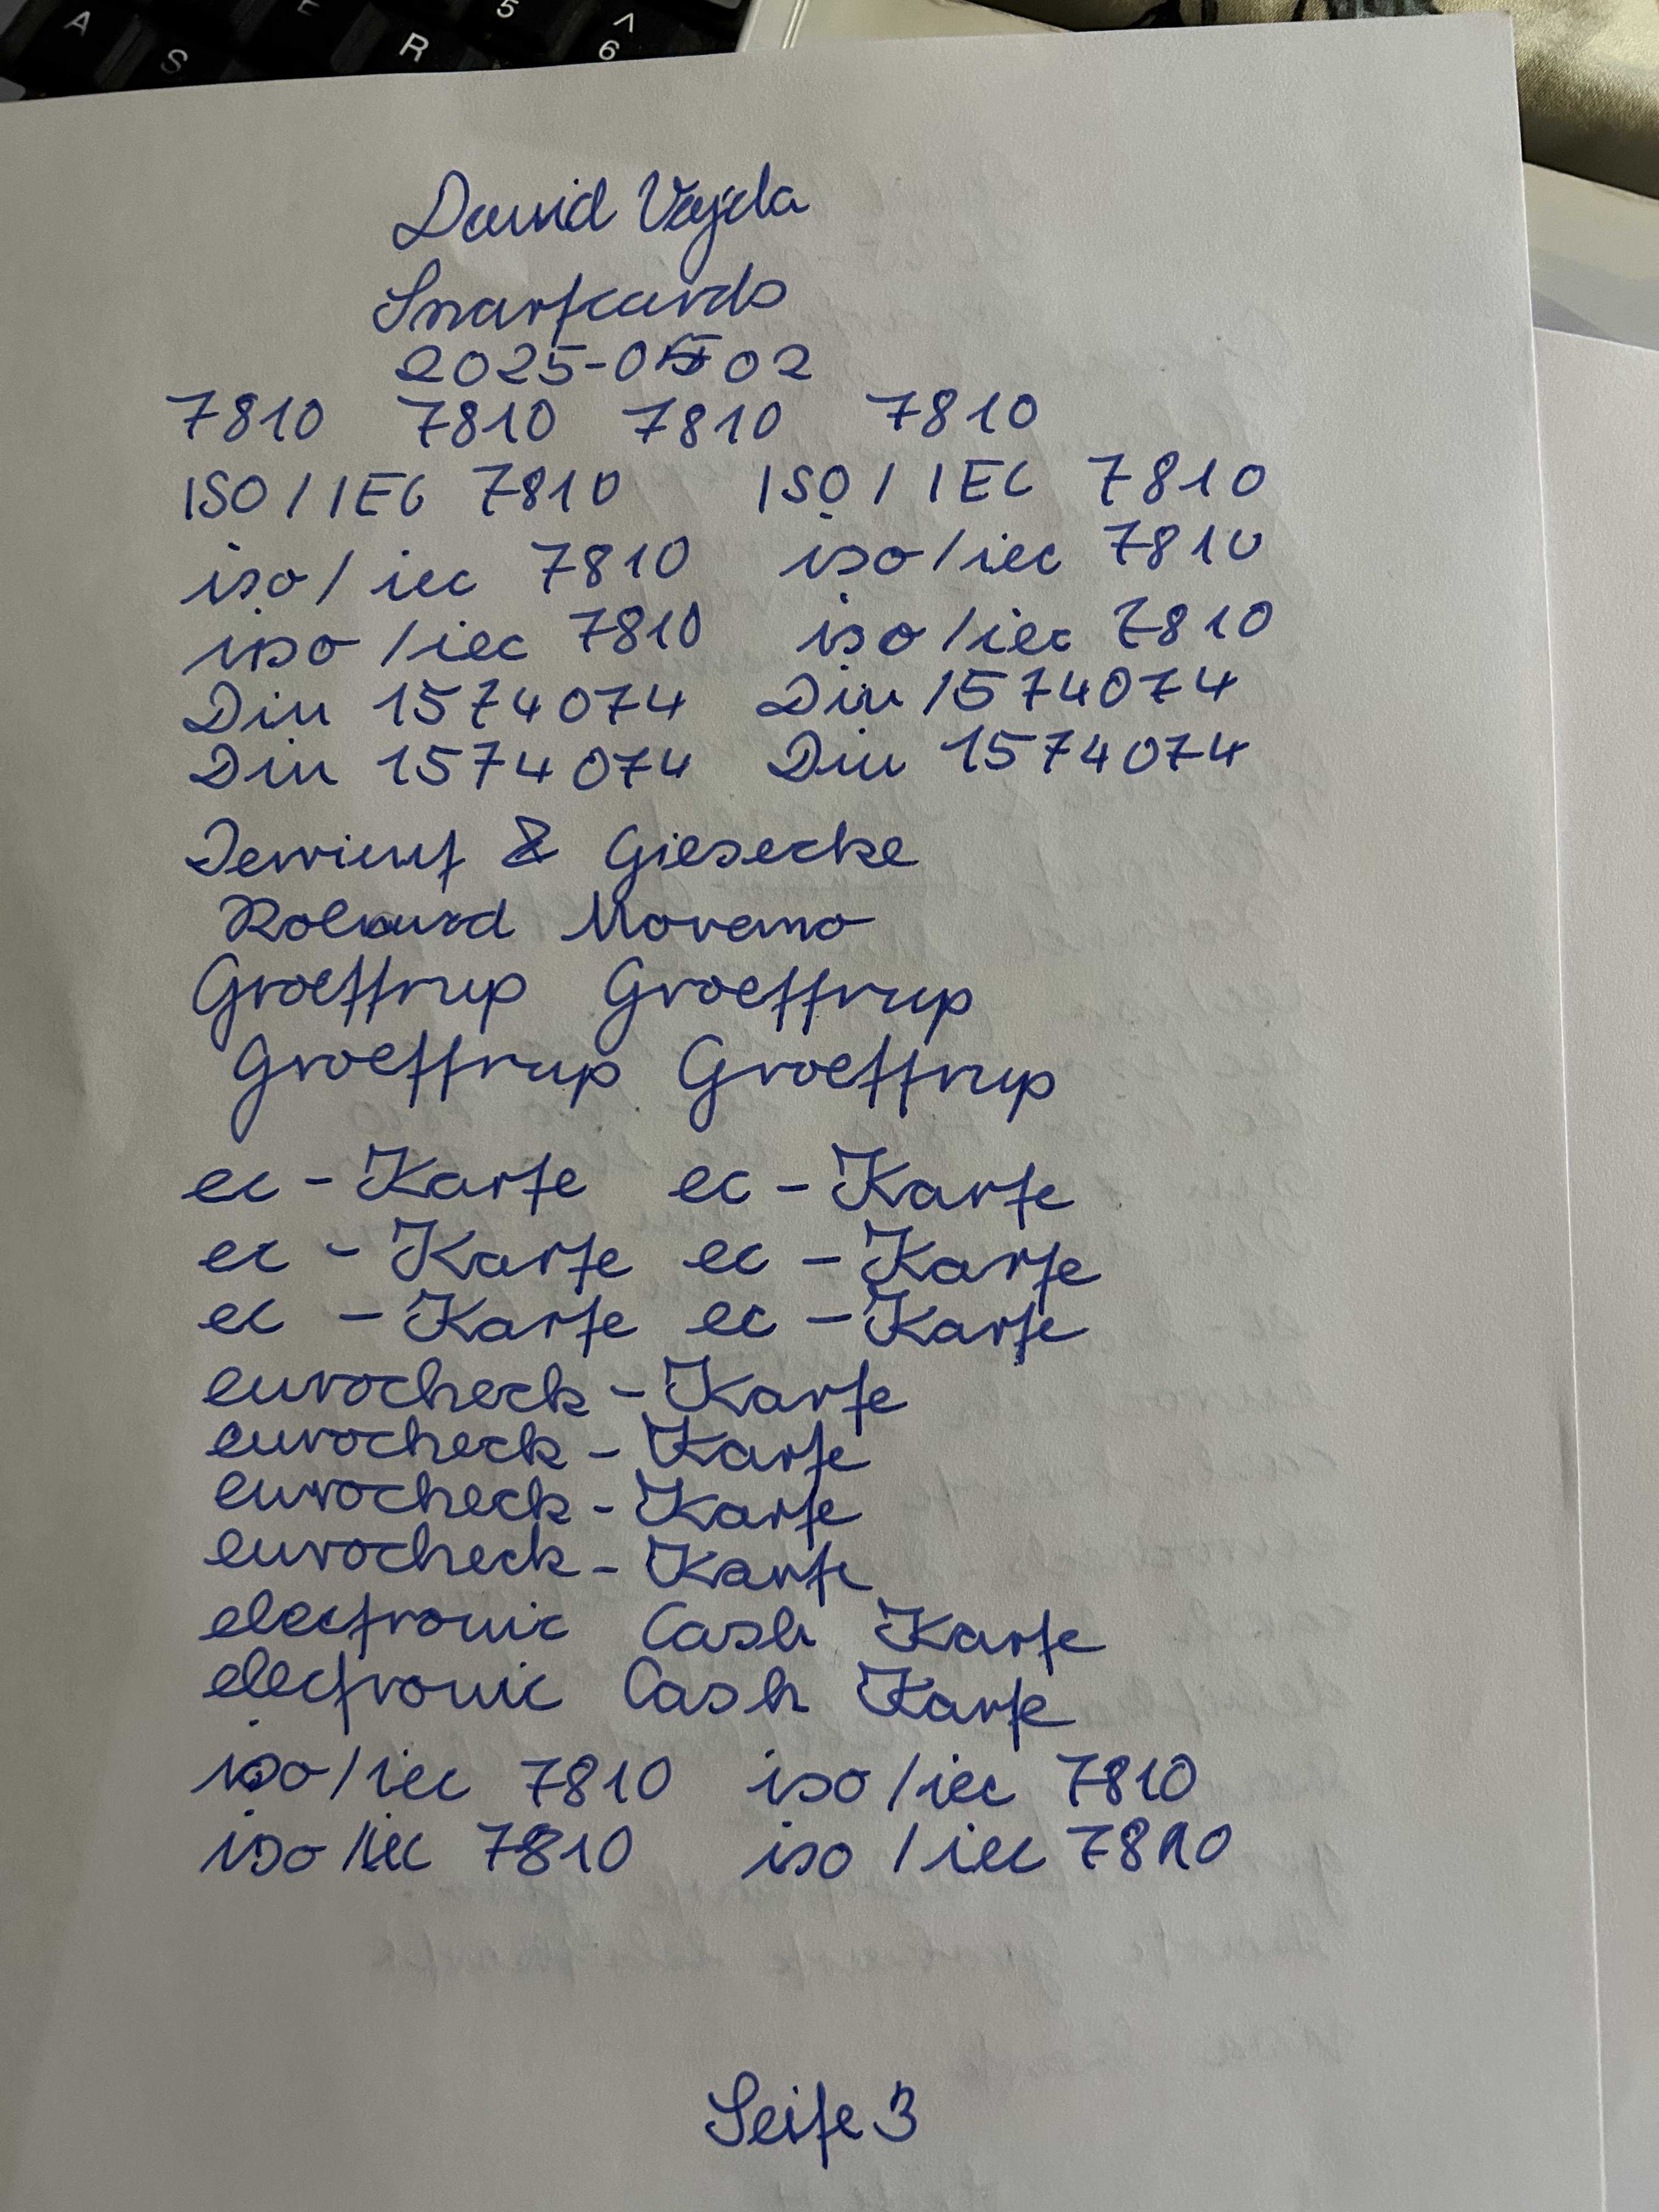 David Vajda
Smartcards
2025-05-02
7810 7810 7810 7810
ISO / IEC 7810 ISO / IEC 7810
iso / iec 7810 iso / iec 7810
iso / iec 7810 iso / iec 7810
Din 1574074 Din 1574074
Din 1574074 Din 1574074
Devrient & Giesecke
Roland Moreno
Groettrup Groettrup
Groettrup Groettrup
ec - Karte ec - Karte
ec - Karte ec - Karte
ec - Karte ec - Karte
eurocheck - Karte
eurocheck - Karte
eurocheck - Karte
eurocheck - Karte
electronic Cash Karte
electronic Cash Karte
iso / iec 7810 iso / iec 7810
iso / iec 7810 iso / iec 7810
Seite 3